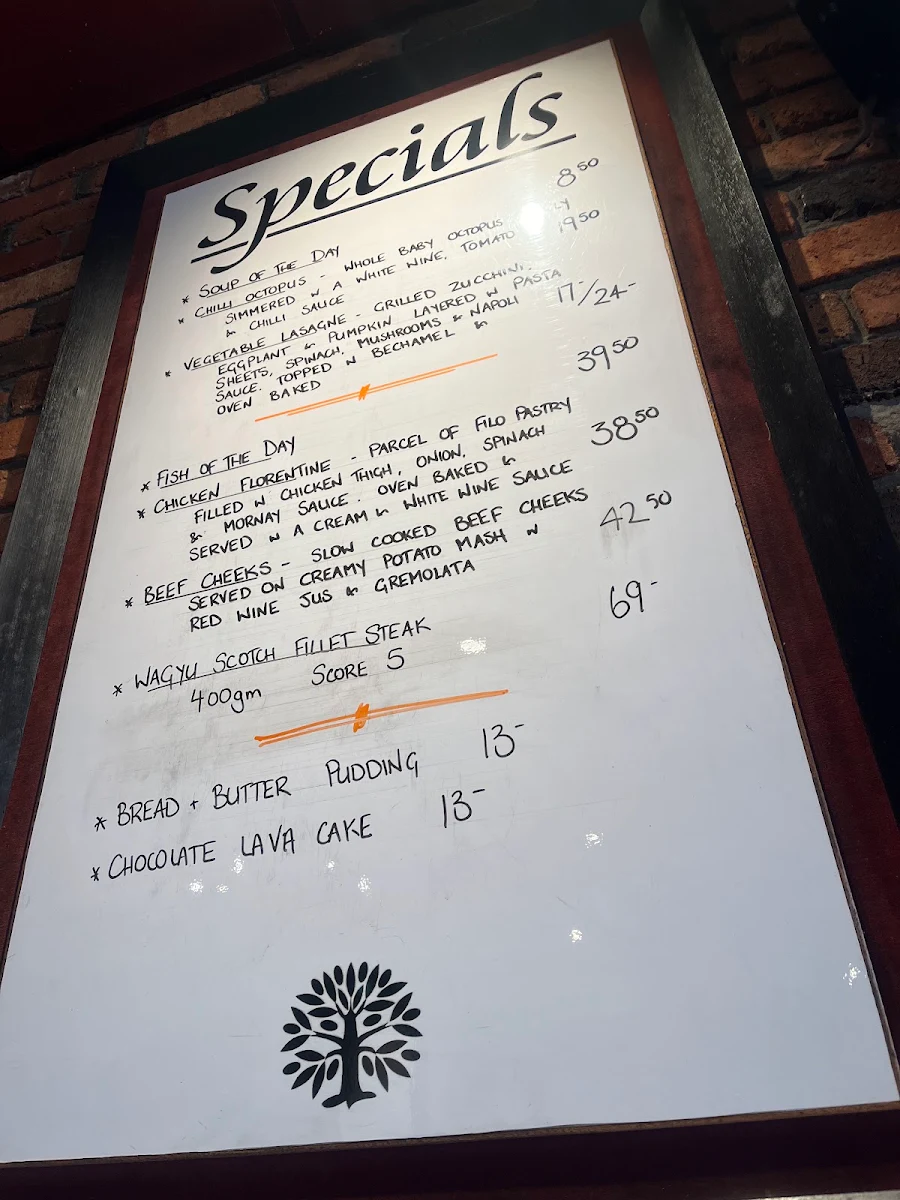 Specials
* SOUP OF THE DAY 8 50
* CHILLI OCTOPUS - WHOLE BABY OCTOPUS 19 50
SIMMERED IN A WHITE WINE, TOMATO
& CHILLI SAUCE
* VEGETABLE LASAGNE - GRILLED ZUCCHINI, 17-/24-
EGGPLANT & PUMPKIN LAYERED IN PASTA
SHEETS, SPINACH, MUSHROOMS & NAPOLI
SAUCE. TOPPED IN BECHAMEL &
OVEN BAKED
* FISH OF THE DAY 39 50
* CHICKEN FLORENTINE - PARCEL OF FILO PASTRY 38 50
FILLED IN CHICKEN THIGH, ONION, SPINACH
& MORNAY SAUCE. OVEN BAKED &
SERVED IN A CREAM & WHITE WINE SAUCE
* BEEF CHEEKS - SLOW COOKED BEEF CHEEKS 42 50
SERVED ON CREAMY POTATO MASH IN
RED WINE JUS & GREMOLATA
* WAGYU SCOTCH FILLET STEAK 69-
400gm SCORE 5
* BREAD + BUTTER PUDDING 13-
* CHOCOLATE LAVA CAKE 13-